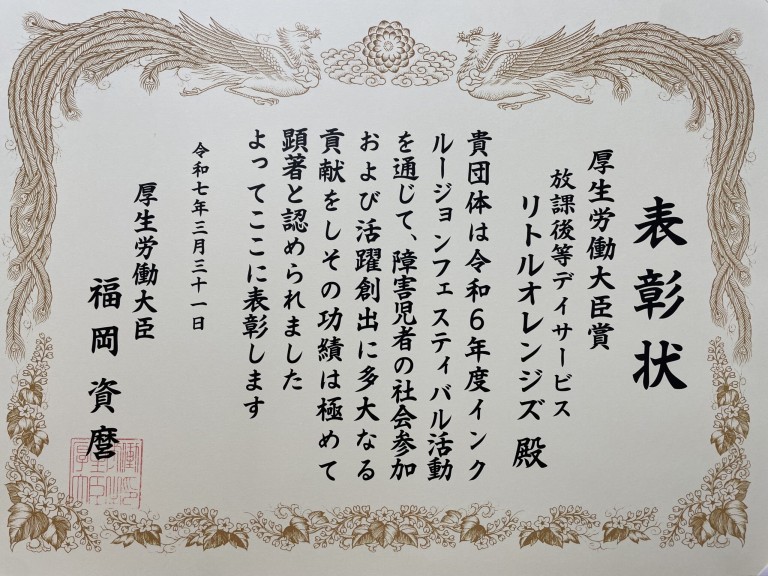 表彰状
厚生労働大臣賞
放課後等デイサービス
リトルオレンジズ 殿
貴団体は令和6年度インク
ルージョンフェスティバル活動
を通じて、障害児者の社会参加
および活躍創出に多大なる
貢献をしその功績は極めて
顕著と認められました
よってここに表彰します
令和七年三月三十一日
厚生労働大臣
福岡資麿